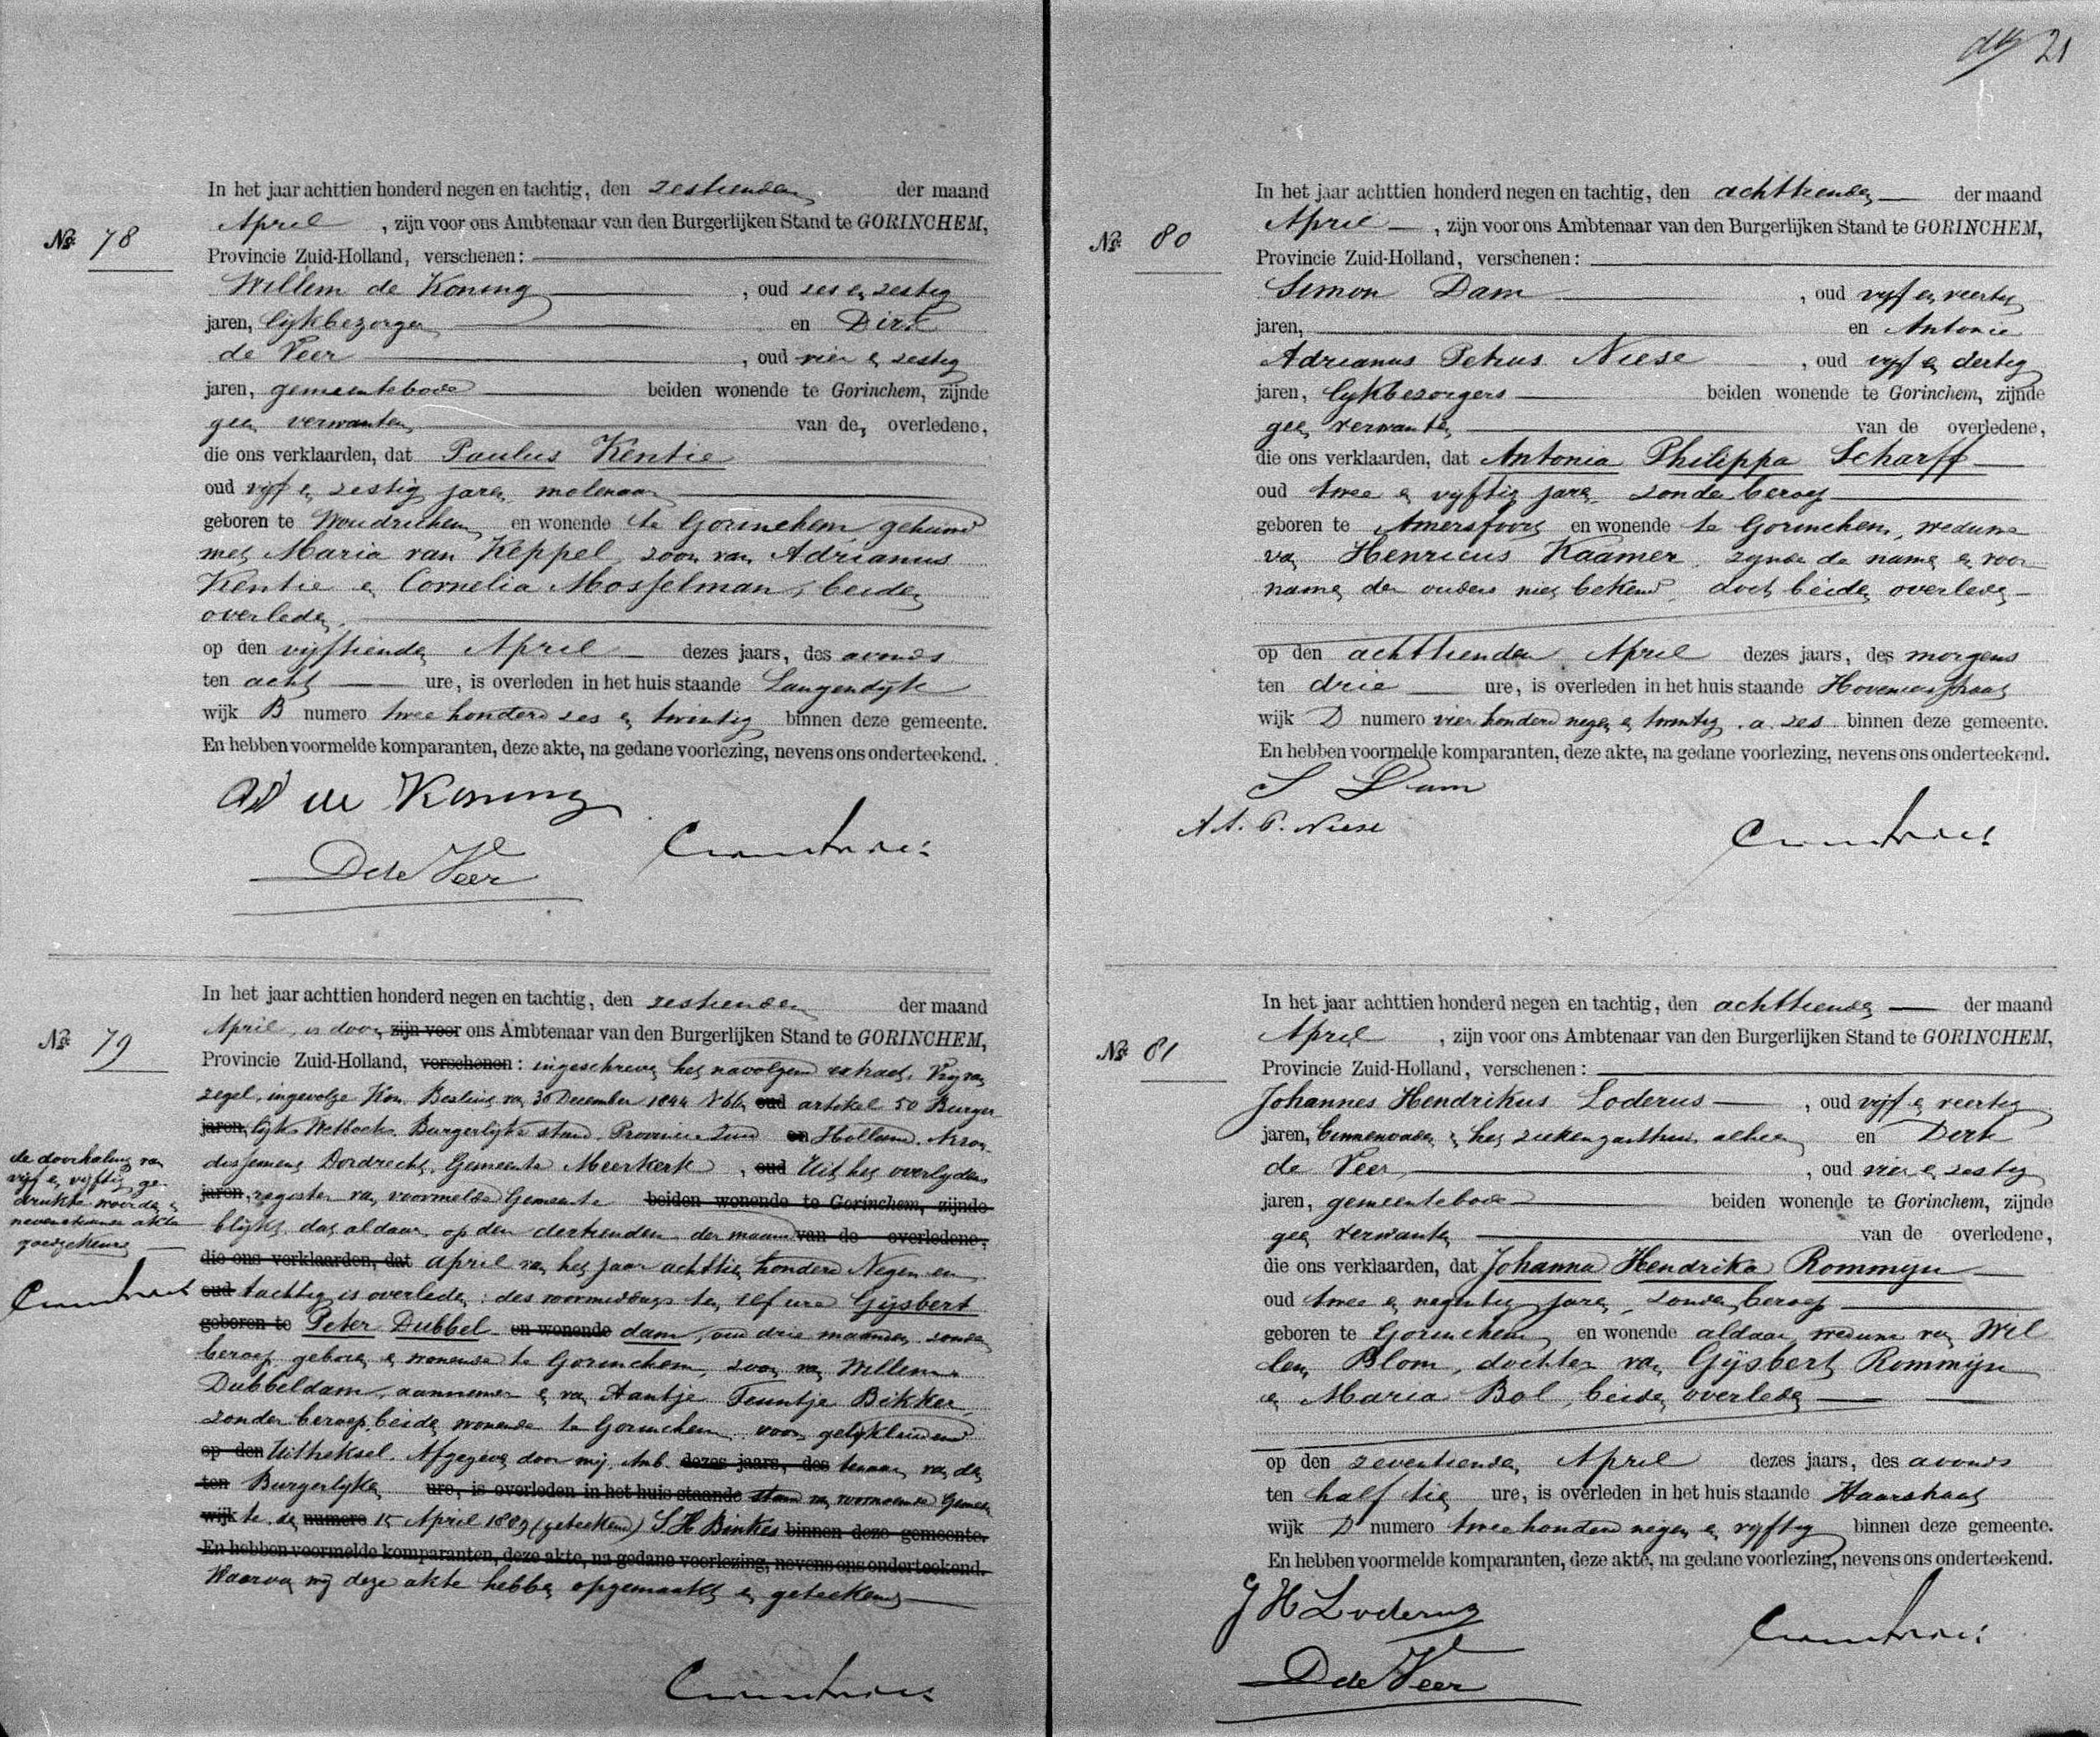 In het jaar achttien honderd negen en tachtig, den zestienden der maand
April, zijn voor ons Ambtenaar van den Burgerlijken Stand te GORINCHEM,
No. 78
Provincie Zuid-Holland, verschenen:
Willem de Koning, oud zes en zestig
jaren, lijkbezorger en Dirk
de Veer, oud vier en zestig
jaren, gemeentebode beiden wonende te Gorinchem, zijnde
geen verwanten van de, overledene,
die ons verklaarden, dat Paulus Kentie
oud vijf en zestig jaren, molenaar
geboren te Woudrichem en wonende te Gorinchem, gehuwd
met Maria van Keppel, zoon van Adrianus
Kentie en Cornelia Mosselman, beiden
overleden,
op den vijftienden April dezes jaars, des avonds
ten acht ure, is overleden in het huis staande Langendijk
wijk B numero twee honderd zes en twintig binnen deze gemeente.
En hebben voormelde komparanten, deze akte, na gedane voorlezing, nevens ons onderteekend.
W de Koning
D de Veer
In het jaar achttien honderd negen en tachtig, den zestienden der maand
April, is door zijn voor ons Ambtenaar van den Burgerlijken Stand te GORINCHEM,
No. 79
Provincie Zuid-Holland, verschenen: ingeschreven het navolgend extract. Vrij van
zegel, ingevolge Kon. Besluit van 30 December 1844 N 66, oud artikel 50 Burger
jaren, lijk Wetboek. Burgerlijke stand. Provincie Zuid en Holland. Arron
dissement Dordrecht, Gemeente Meerkerk, oud Uit het overlijdens
jaren, register van voormelde Gemeente beiden wonende te Gorinchem, zijnde
blijkt dat aldaar op den dertienden der maand van de overledene,
die ons verklaarden, dat April van het jaar achttien honderd Negen en
oud tachtig is overleden: des voormiddags ten elf ure Gijsbert
geboren te Peter Dubbel en wonende dam, oud drie maanden, zonder
beroep geboren en wonende te Gorinchem, zoon van Willem
Dubbeldam, aannemer en van Aantje Teuntje Bikker
zonder beroep, beiden wonende te Gorinchem. voor gelijkluidend
op den Uittreksel. Afgegeven door mij Amb. dezes jaars, des tenaar van den
ten Burgerlijken ure, is overleden in het huis staande stand van voornoemde Gemeen
wijk te. den numero 15 April 1889 (geteekend) S H Binkes binnen deze gemeente.
En hebben voormelde komparanten, deze akte, na gedane voorlezing, nevens ons onderteekend.
Waarvan wij deze akte hebben opgemaakt en geteekend
de doorhaling van
vijf en vijftig ge-
drukte woorden in
nevenstaande akte
goedgekeurd
21
In het jaar achttien honderd negen en tachtig, den achttienden der maand
April, zijn voor ons Ambtenaar van den Burgerlijken Stand te GORINCHEM,
No. 80
Provincie Zuid-Holland, verschenen:
Simon Dam, oud vijf en veertig
jaren, en Antonie
Adrianus Petrus Niese, oud vijf en dertig
jaren, lijkbezorgers beiden wonende te Gorinchem, zijnde
geen verwanten van de overledene,
die ons verklaarden, dat Antonia Philippa Scharff
oud twee en vijftig jaren, zonder beroep
geboren te Amersfoort en wonende te Gorinchem, weduwe
van Henricus Kaamer, zijnde de namen en voor
namen der ouders niet bekend, doch beiden overleden
op den achttienden April dezes jaars, des morgens
ten drie ure, is overleden in het huis staande Hovenierstraat
wijk D numero vier honderd negen en twintig . a. zes binnen deze gemeente.
En hebben voormelde komparanten, deze akte, na gedane voorlezing, nevens ons onderteekend.
S Dam
A. A. P. Niese
In het jaar achttien honderd negen en tachtig, den achttienden der maand
April, zijn voor ons Ambtenaar van den Burgerlijken Stand te GORINCHEM,
No. 81
Provincie Zuid-Holland, verschenen:
Johannes Hendrikus Loderus, oud vijf en veertig
jaren, binnenvader in het ziekengasthuis alhier en Dirk
de Veer, oud vier en zestig
jaren, gemeentebode beiden wonende te Gorinchem, zijnde
geen verwanten van de overledene,
die ons verklaarden, dat Johanna Hendrika Rommijn
oud twee en negentig jaren, zonder beroep
geboren te Gorinchem en wonende aldaar, weduwe van Wil
lem Blom, dochter van Gijsbert Rommijn
en Maria Bol, beiden overleden
op den zeventienden April dezes jaars, des avonds
ten half tien ure, is overleden in het huis staande Haarstraat
wijk D numero twee honderd negen en vijftig binnen deze gemeente.
En hebben voormelde komparanten, deze akte, na gedane voorlezing, nevens ons onderteekend.
J H Loderus
D de Veer